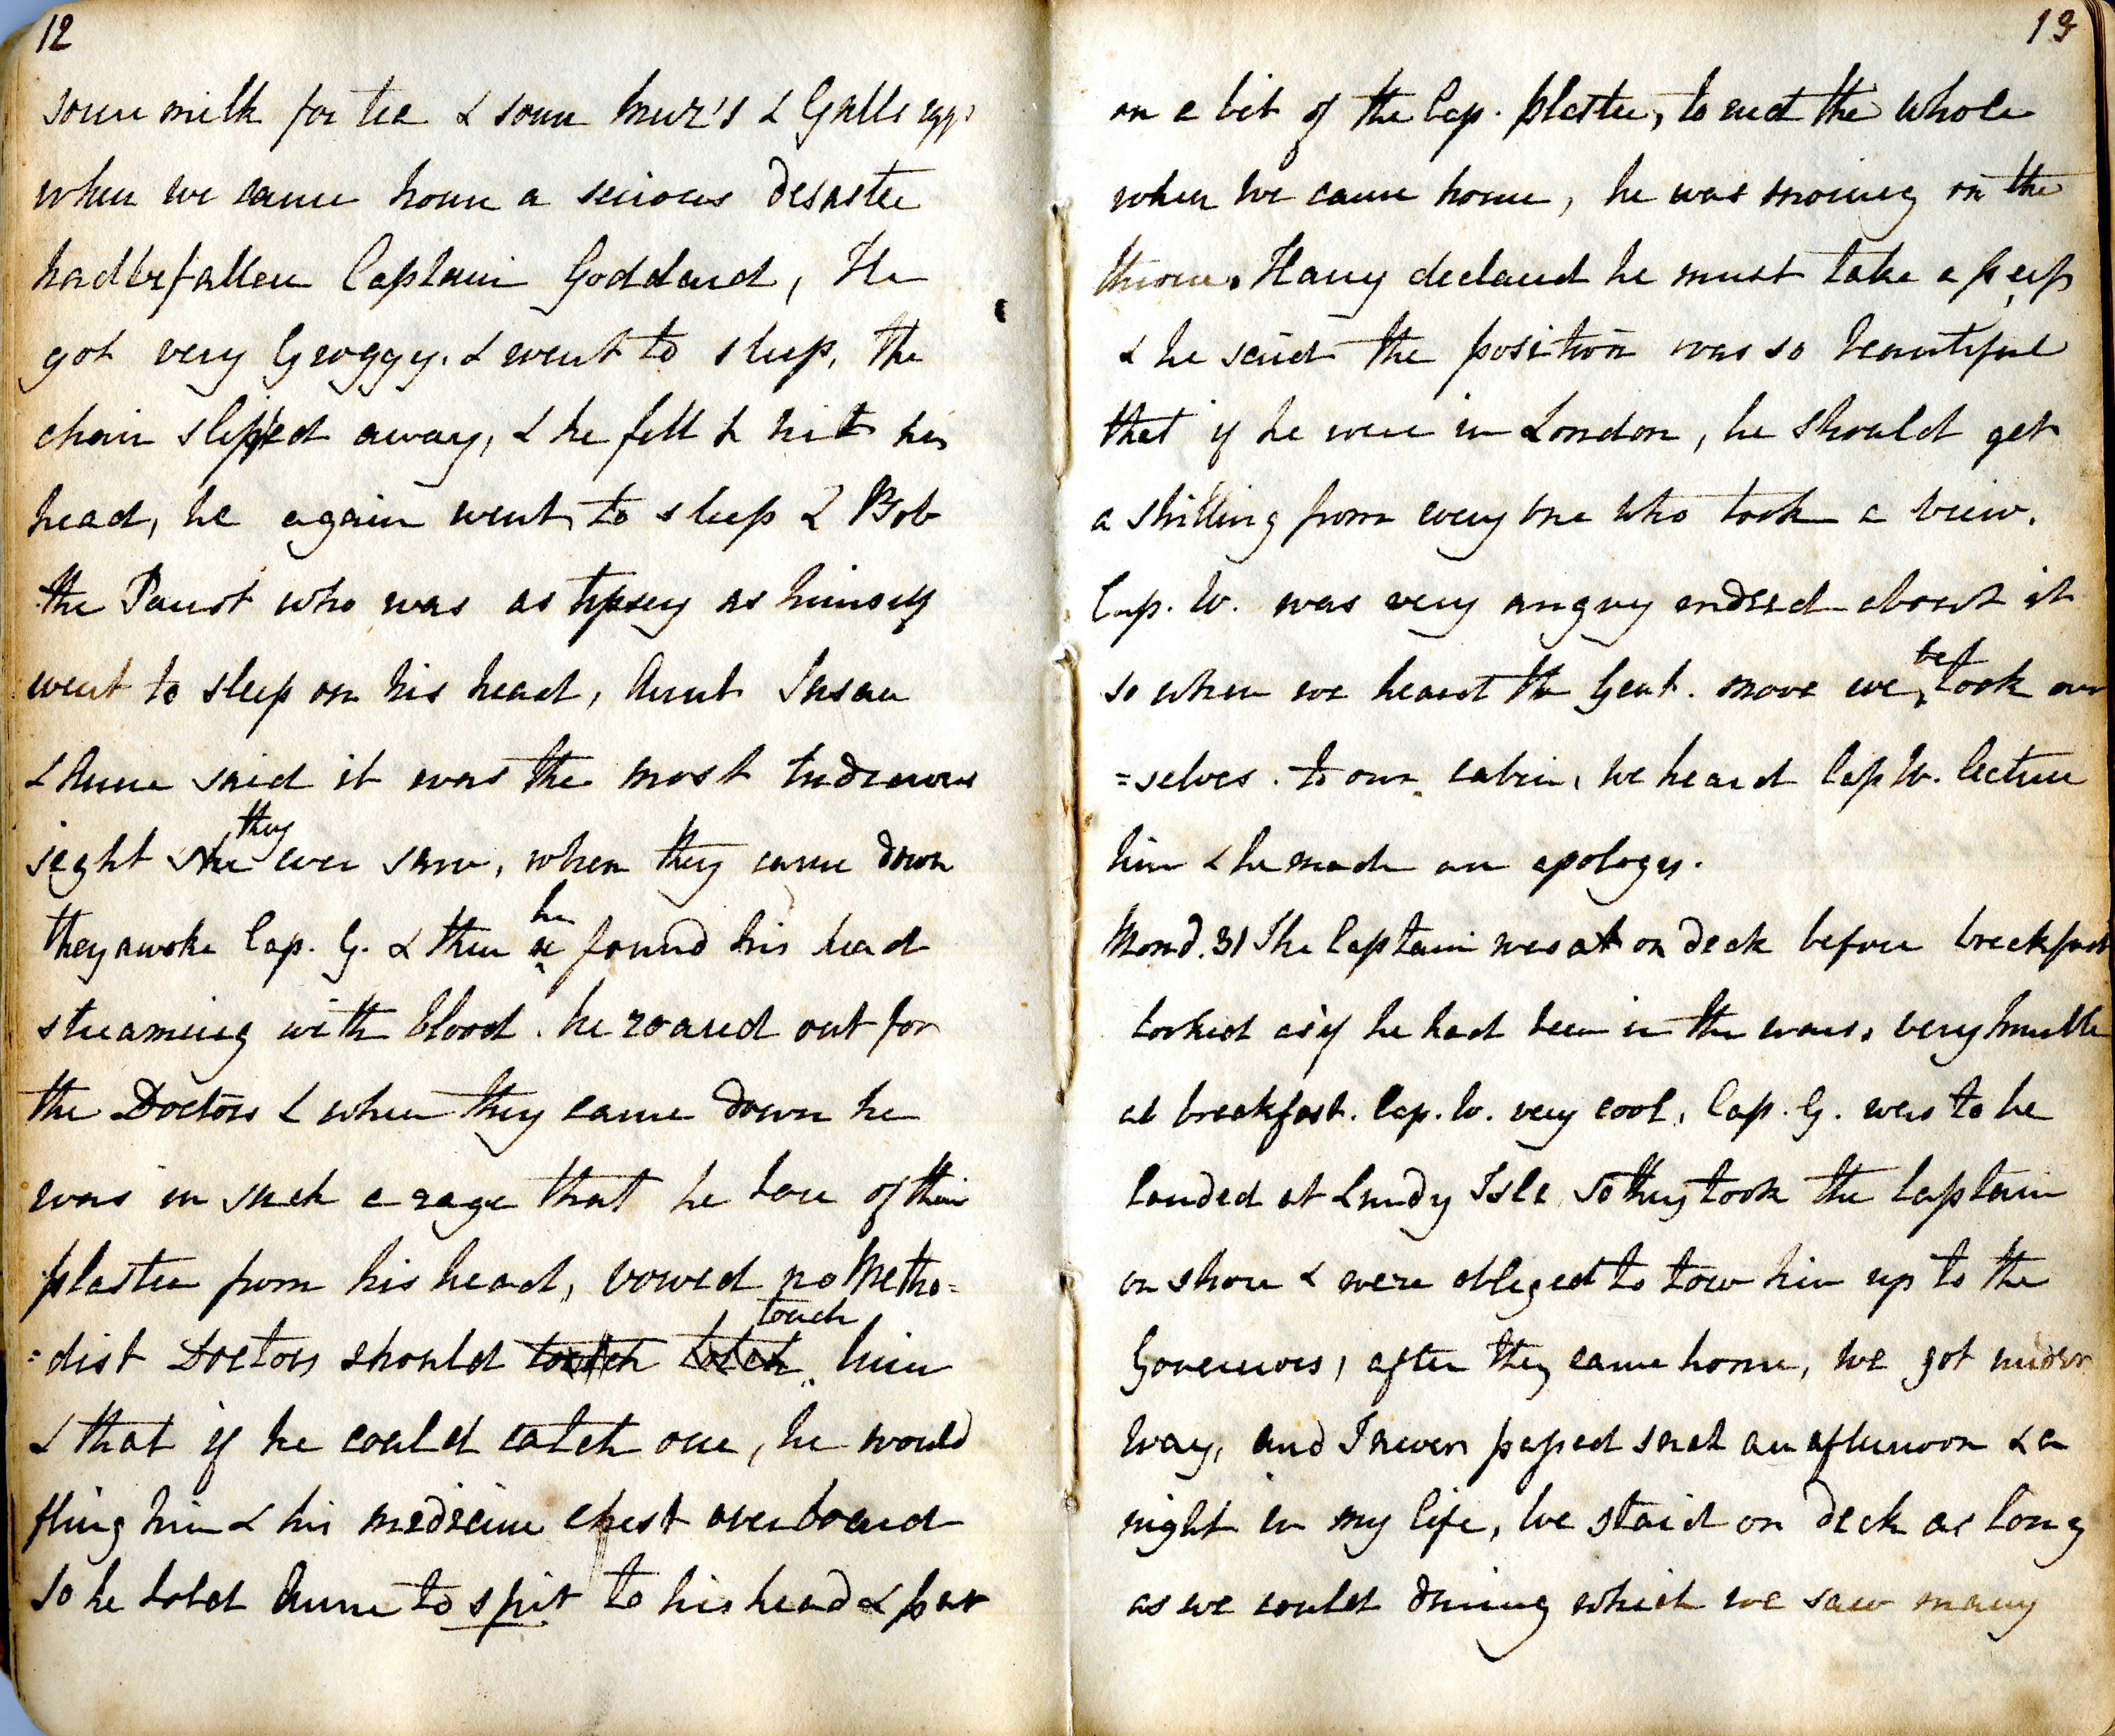 12
some milk for tea & some mur's & Gulls eggs
when we came home a serious desaster
had befallen Captain Goddard, He
got very Groggy. & went to sleep, the
chair slipped away, & he fell & hit his
head, he again went to sleep & Bob
the Parrot who was as tipsey as himself
went to sleep on his head, Aunt Susan
& Anne said it was the most
sight she they ever saw, when they came down
they awoke Cap. G. & then he found his head
streaming with blood. he roared out for
the Doctors & when they came down he
was in such a rage that he tore of their
plaster from his head, vowed no Metho=
=dist Doctors should touch him
& that if he could catch one, he would
fling him & his medicine chest overboard
so he told Anne to spit to his head & put
13
on a bit of the Cap. plaster, to end the whole
when we came home, he was snoring on the
throne. Harry declared he must take a peep
& he said the position was so beautiful
that if he were in London, he should get
a shilling from every one who took a view.
Cap. W. was very angry indeed about it
so when we heard the Gent. move we betook our
=selves. to our cabin, we heard Cap W. lecture
him & he made an apology.
Mond. 31 The Captain was at on deck before breakfast
looked as if he had been in the wars, very humble
at breakfast. Cap. W. very cool, Cap. G. was to be
landed at Lundy Isle so they took the Captain
on shore & were obliged to tow him up to the
Governors, after they came home, we got under
way, and I never passed such an afternoon & a
night in my life, we staid on deck as long
as we could during which we saw many